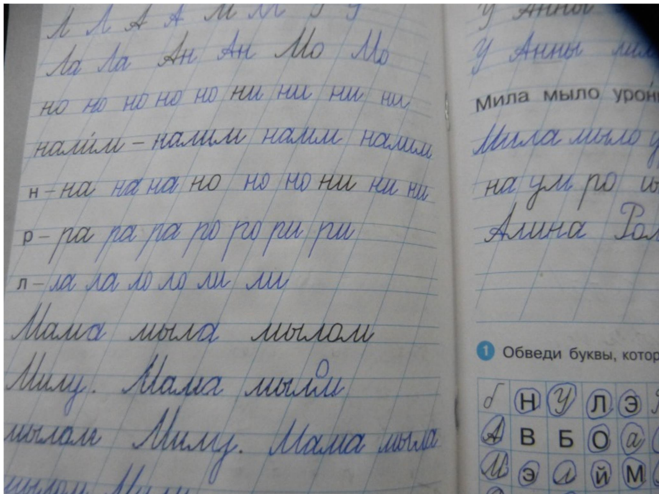 Л Л А А М М У У
Ла Ла Ан Ан Мо Мо
но но но но но ни ни ни ни
налим – налим налим налим
н – на на на но но но ни ни ни
р – ра ра ра ро ро ри ри
л – ла ла ло ло ли ли
Мама мыла мылом
Милу. Мама мылом
мылом Милу. Мама мыла
мылом Милу
У Анны
У Анны
Мила мыло урон
Мила мыло у
на ум ро
Алина Ром
1 Обведи буквы, котор
б Н У Л Э
А В Б О а
М э л й М